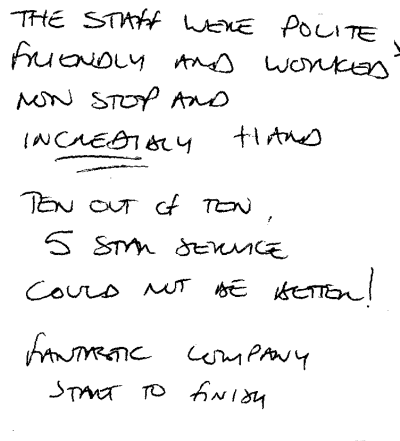 THE STAFF WERE POLITE,
FRIENDLY AND WORKED
NON STOP AND
INCREDIBLY HARD
TEN OUT OF TEN,
5 STAR SERVICE
COULD NOT BE BETTER!
FANTASTIC COMPANY
START TO FINISH